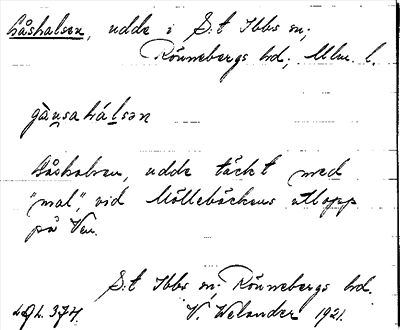 Gåshalsen, udde i S:t Ibbs sn;
Rönnebergs hd; Mlm. l.
gàu̯sahál̯sən
Gåshalsen, udde täckt med
"mal", vid Möllebäckens utlopp
på Ven.
S:t Ibbs sn; Rönnebergs hd.
V. Welander 1921.